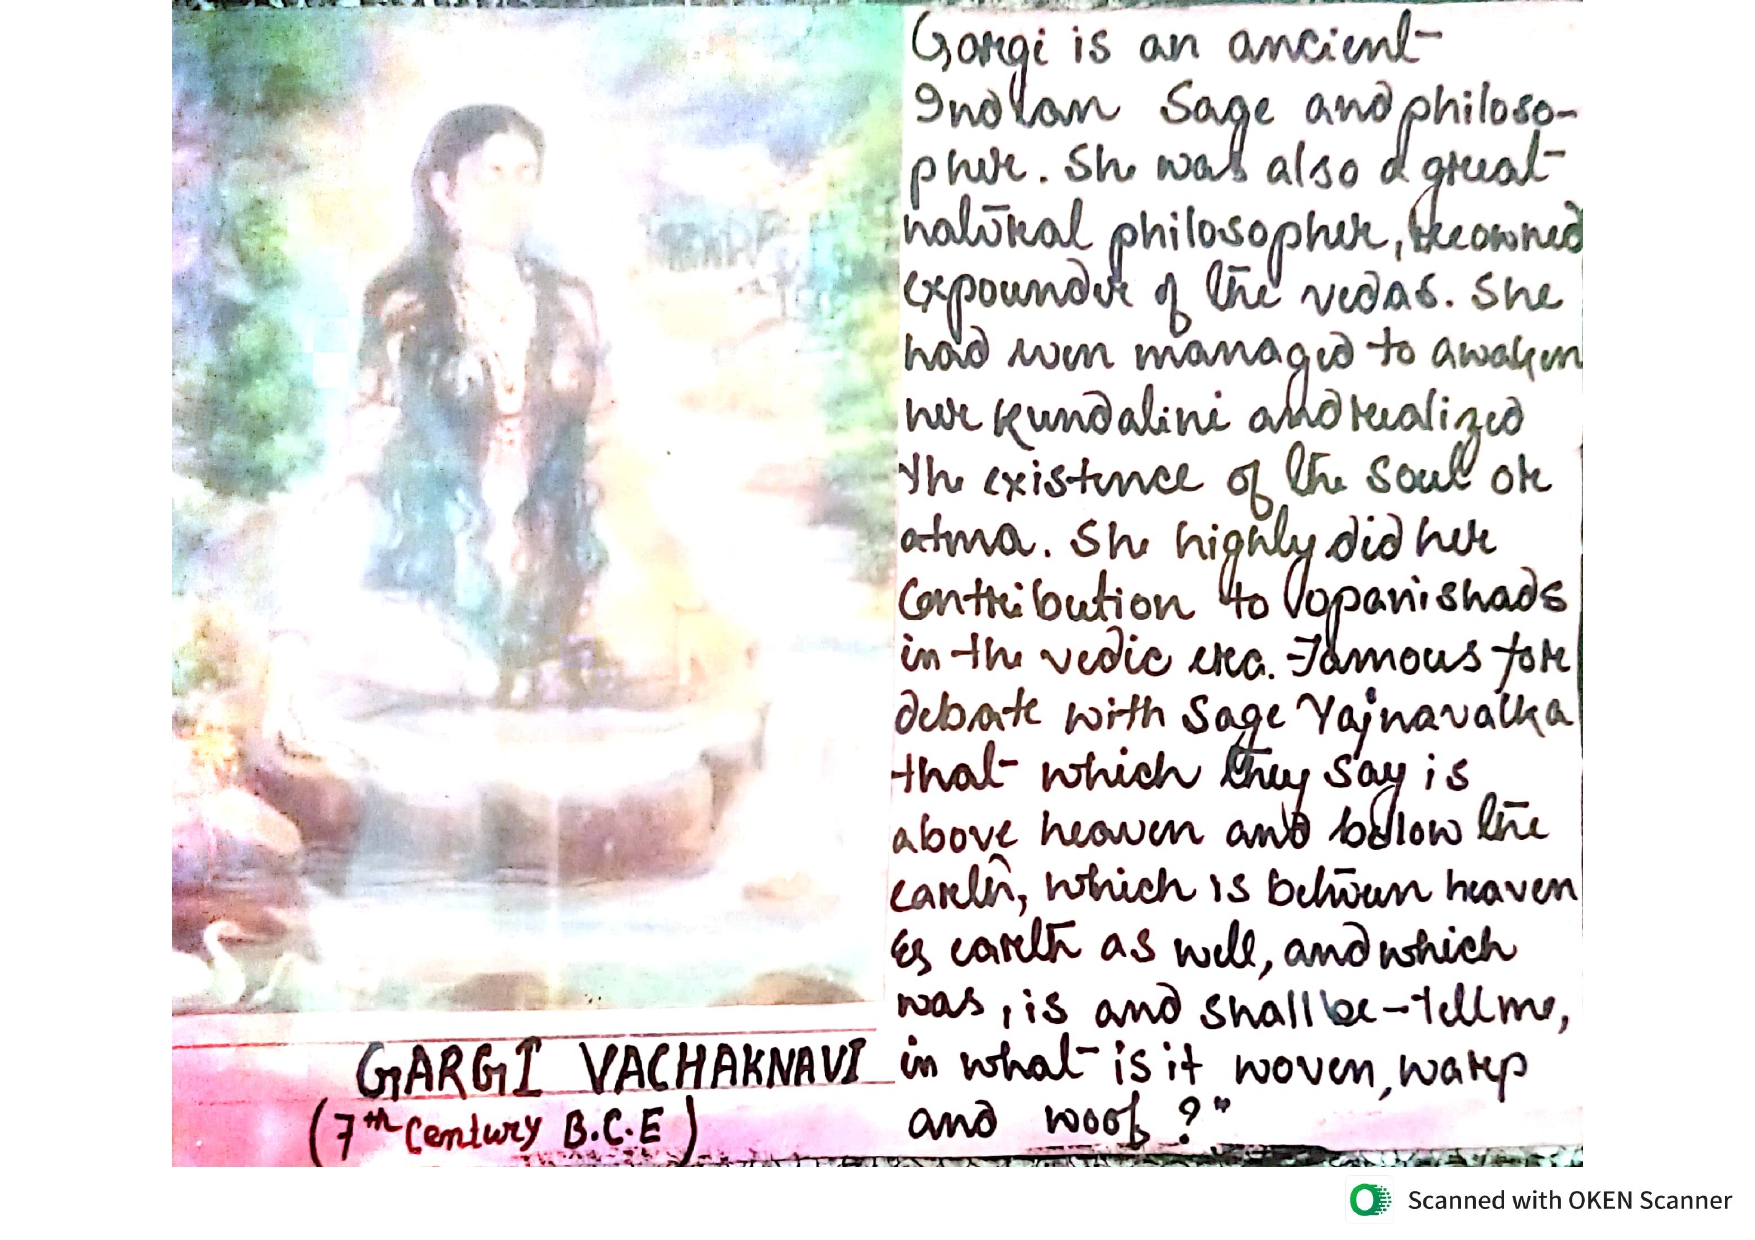 Gargi is an ancient
Indian Sage and philoso-
pher. She was also a great
natural philosopher, reowned
expounder of the vedas. She
had even managed to awaken
her Kundalini and realized
the existence of the Soul or
atma. She highly did her
Contribution to Upanishads
in the vedic era. Famous for
debate with Sage Yajnavalka
that which they say is
above heaven and below the
earth, which is between heaven
& earth as well, and which
was, is and shall be - tell me,
in what is it woven, warp
and woof?"
GARGI VACHAKNAVI
(7th Century B.C.E)
Scanned with OKEN Scanner